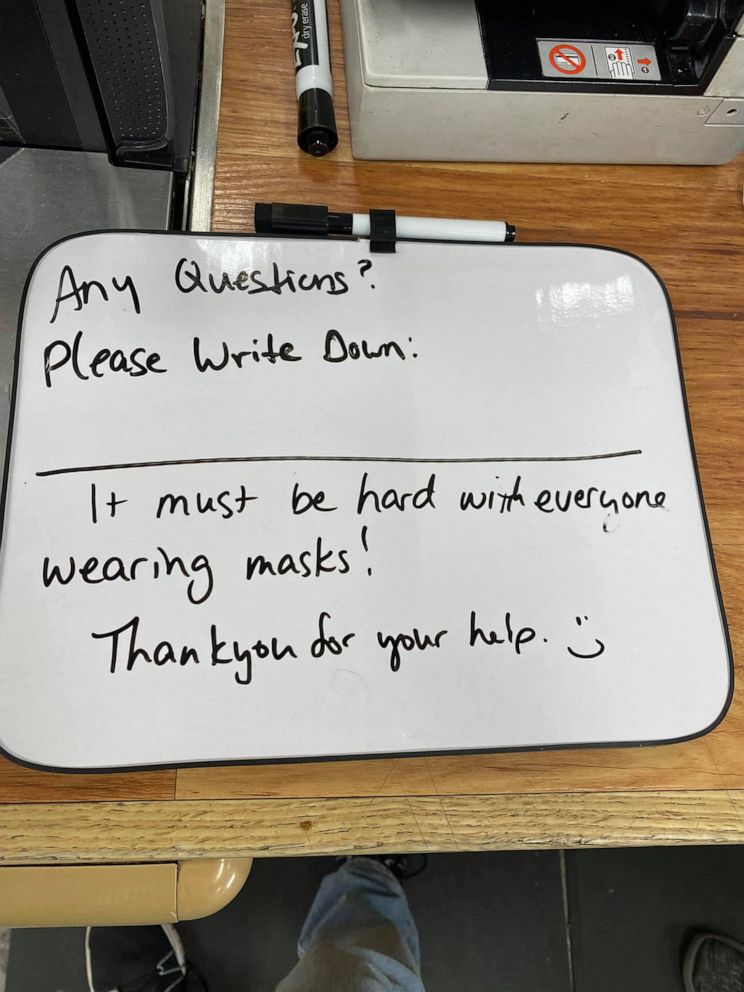 EXPO dry erase
Any Questions?
Please Write Down:
It must be hard with everyone
wearing masks!
Thank you for your help. :)